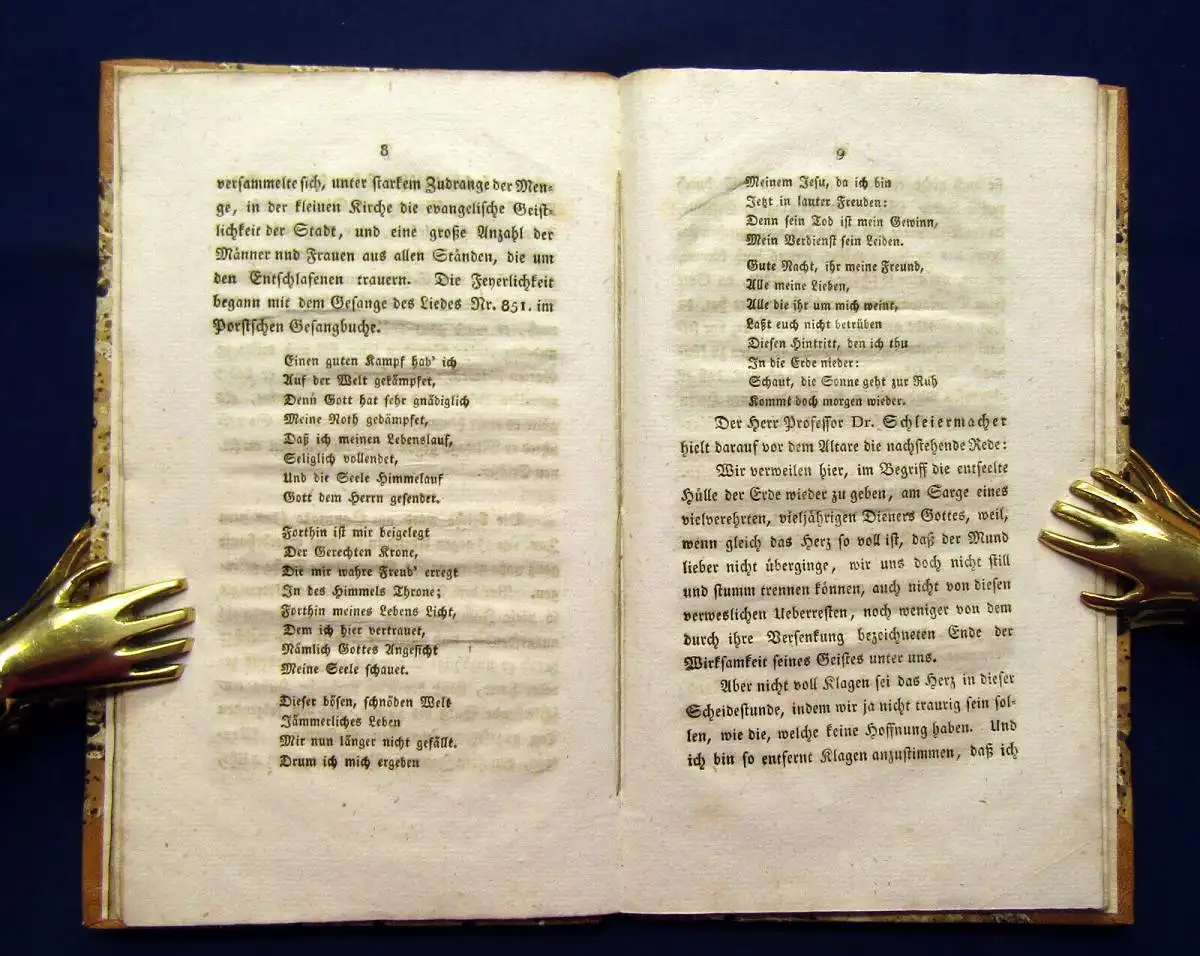 8
versammelte sich, unter starkem Zudrange der Men-
ge, in der kleinen Kirche die evangelische Geist-
lichkeit der Stadt, und eine große Anzahl der
Männer nnd Frauen aus allen Ständen, die um
den Entschlafenen trauern. Die Feyerlichkeit
begann mit dem Gesange des Liedes Nr. 851. im
Porstschen Gesangbuche.
Einen guten Kampf hab' ich
Auf der Welt gekämpfet,
Denn Gott hat sehr gnädiglich
Meine Noth gedämpfet,
Daß ich meinen Lebenslauf,
Seliglich vollendet,
Und die Seele Himmelauf
Gott dem Herrn gesendet.
Forthin ist mir beigelegt
Der Gerechten Krone,
Die mir wahre Freud' erregt
In des Himmels Throne;
Forthin meines Lebens Licht,
Dem ich hier vertrauet,
Nämlich Gottes Angesicht
Meine Seele schauet.
Dieser bösen, schnöden Welt
Jämmerliches Leben
Mir nun länger nicht gefällt.
Drum ich mich ergeben
9
Meinem Jesu, da ich bin
Jetzt in lauter Freuden:
Denn sein Tod ist mein Gewinn,
Mein Verdienst sein Leiden.
Gute Nacht, ihr meine Freund,
Alle meine Lieben,
Alle die ihr um mich weint,
Laßt euch nicht betrüben
Diesen Hintritt, den ich thu
In die Erde nieder:
Schaut, die Sonne geht zur Ruh
Kommt doch morgen wieder.
Der Herr Professor Dr. Schleiermacher
hielt darauf vor dem Altare die nachstehende Rede:
Wir verweilen hier, im Begriff die entseelte
Hülle der Erde wieder zu geben, am Sarge eines
vielverehrten, vieljährigen Dieners Gottes, weil,
wenn gleich das Herz so voll ist, daß der Mund
lieber nicht überginge, wir uns doch nicht still
und stumm trennen können, auch nicht von diesen
verweslichen Ueberresten, noch weniger von dem
durch ihre Versenkung bezeichneten Ende der
Wirksamkeit seines Geistes unter uns.
Aber nicht voll Klagen sei das Herz in dieser
Scheidestunde, indem wir ja nicht traurig sein sol-
len, wie die, welche keine Hoffnung haben. Und
ich bin so entfernt Klagen anzustimmen, daß ich